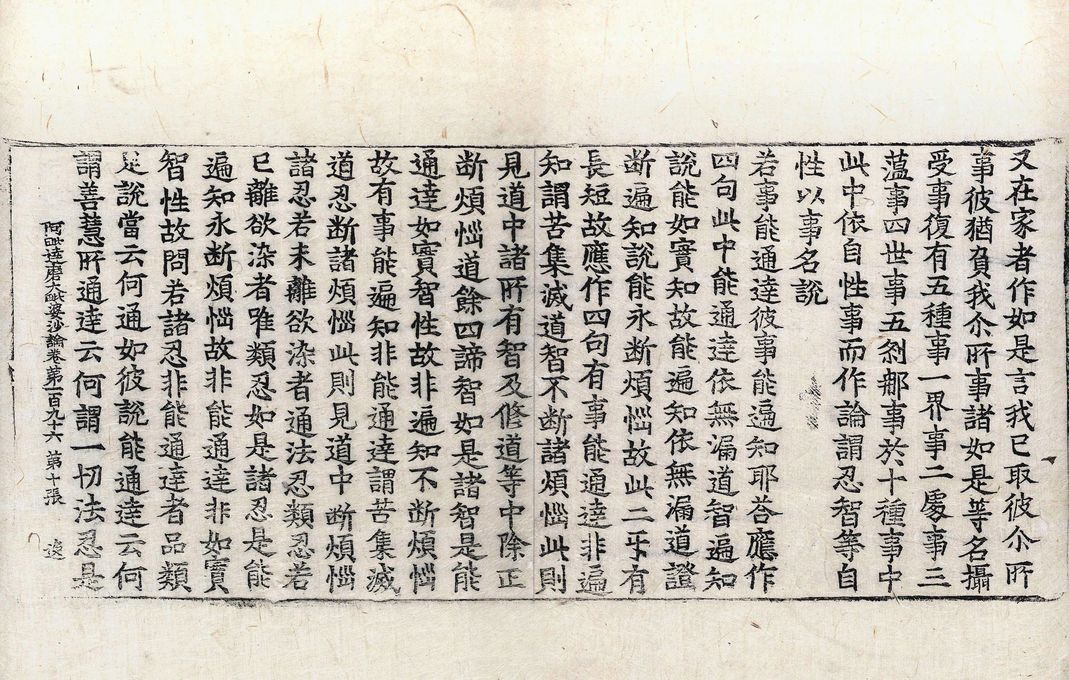 又在家者作如是言我已取彼尒所
事彼猶負我尒所事諸如是等名攝
受事復有五種事一界事二處事三
薀事四世事五剎那事於十種事中
此中依自性事而作論謂忍智等自
性以事名說
若事能通達彼事能遍知耶荅應作
四句此中能通達依無漏道智遍知
說能如實知故能遍知依無漏道證
断遍知說能永断煩惱故此二乎有
長短故應作四句有事能通達非遍
知謂苦集滅道智不断諸煩惱此則
見道中諸所有智及修道等中除正
断煩惱道餘四諦智如是諸智是能
通達如實智性故非遍知不断煩惱
故有事能遍知非能通達謂苦集滅
道忍断諸煩惱此則見道中断煩惱
諸忍若未離欲染者通法忍類忍若
已離欲染者唯類忍如是諸忍是能
遍知永断煩惱故非能通達非如實
智性故問若諸忍非能通達者品類
足說當云何通如彼說能通達云何
謂善慧所通達云何謂一切法忍是
阿毗達磨大毗婆沙論卷第一百九十六 第十張 逸